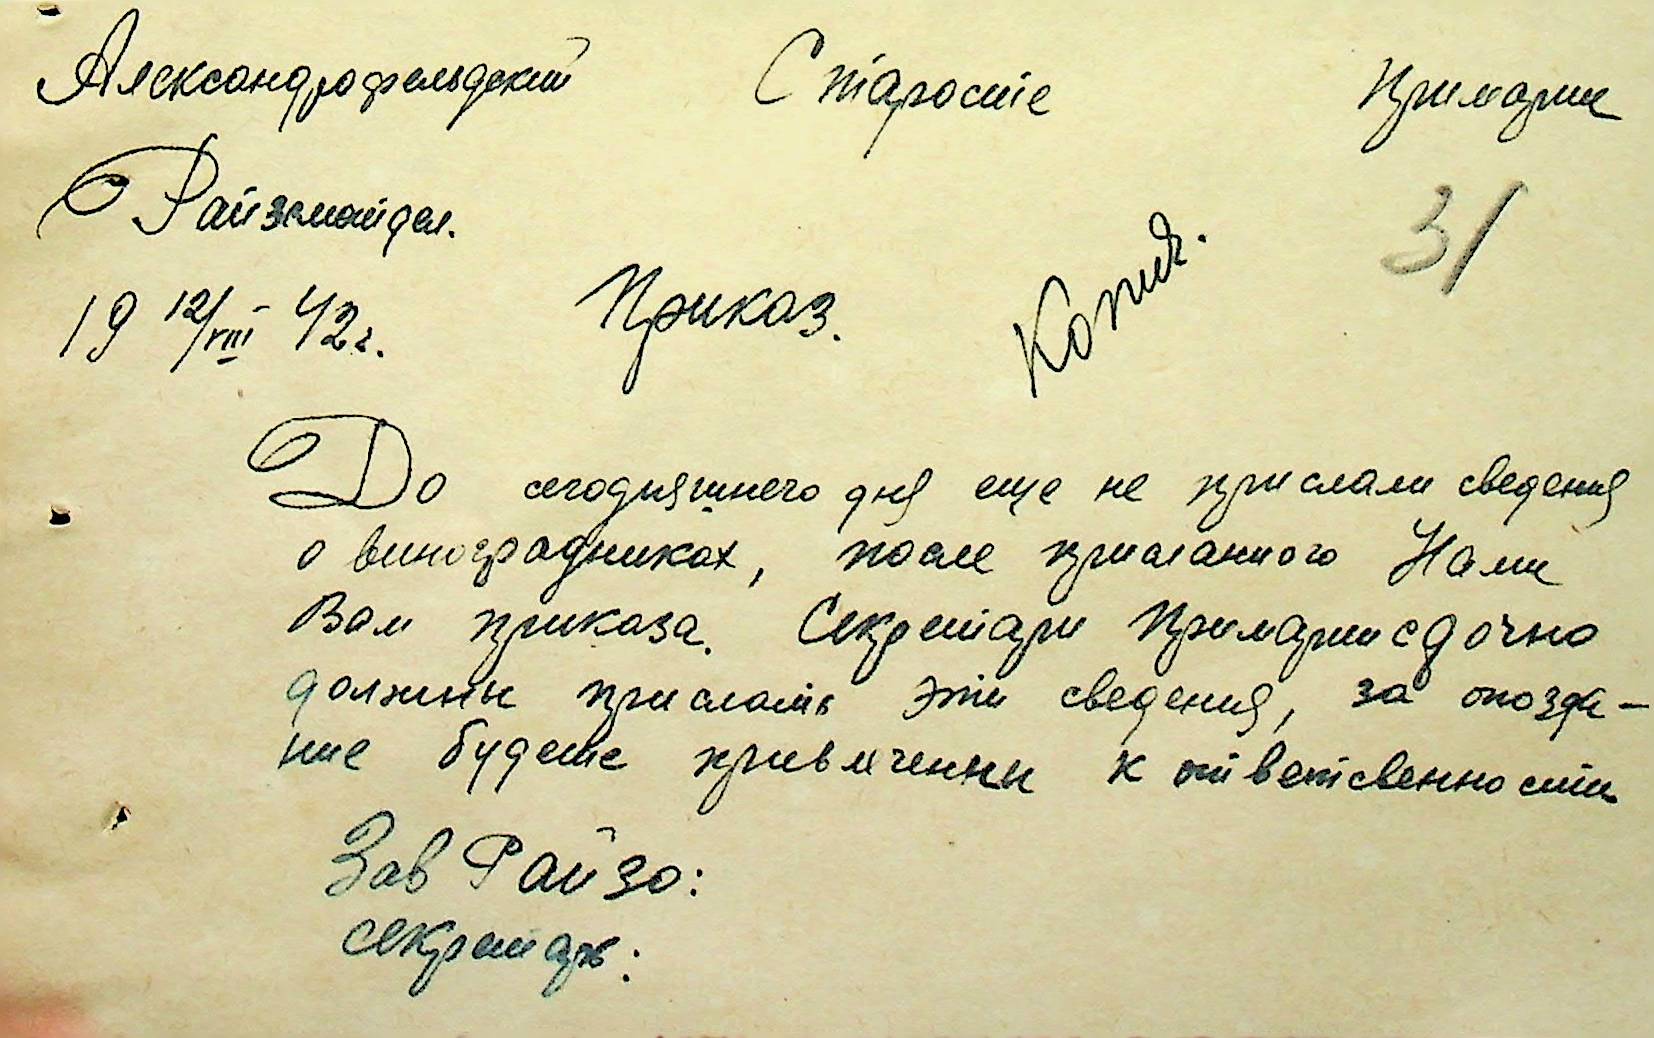 Александрофельдский Старосте Примарии
Райземотдел. 31
19 12/VIII 42 г. Приказ. Копия.
До сегодняшнего дня еще не прислали сведения
о виноградниках, после присланного Нами
Вам приказа. Секретари Примарии сочно
должны прислать эти сведения, за опозда-
ние будете привлеченны к ответсвенности
Зав Райзо:
секретарь: